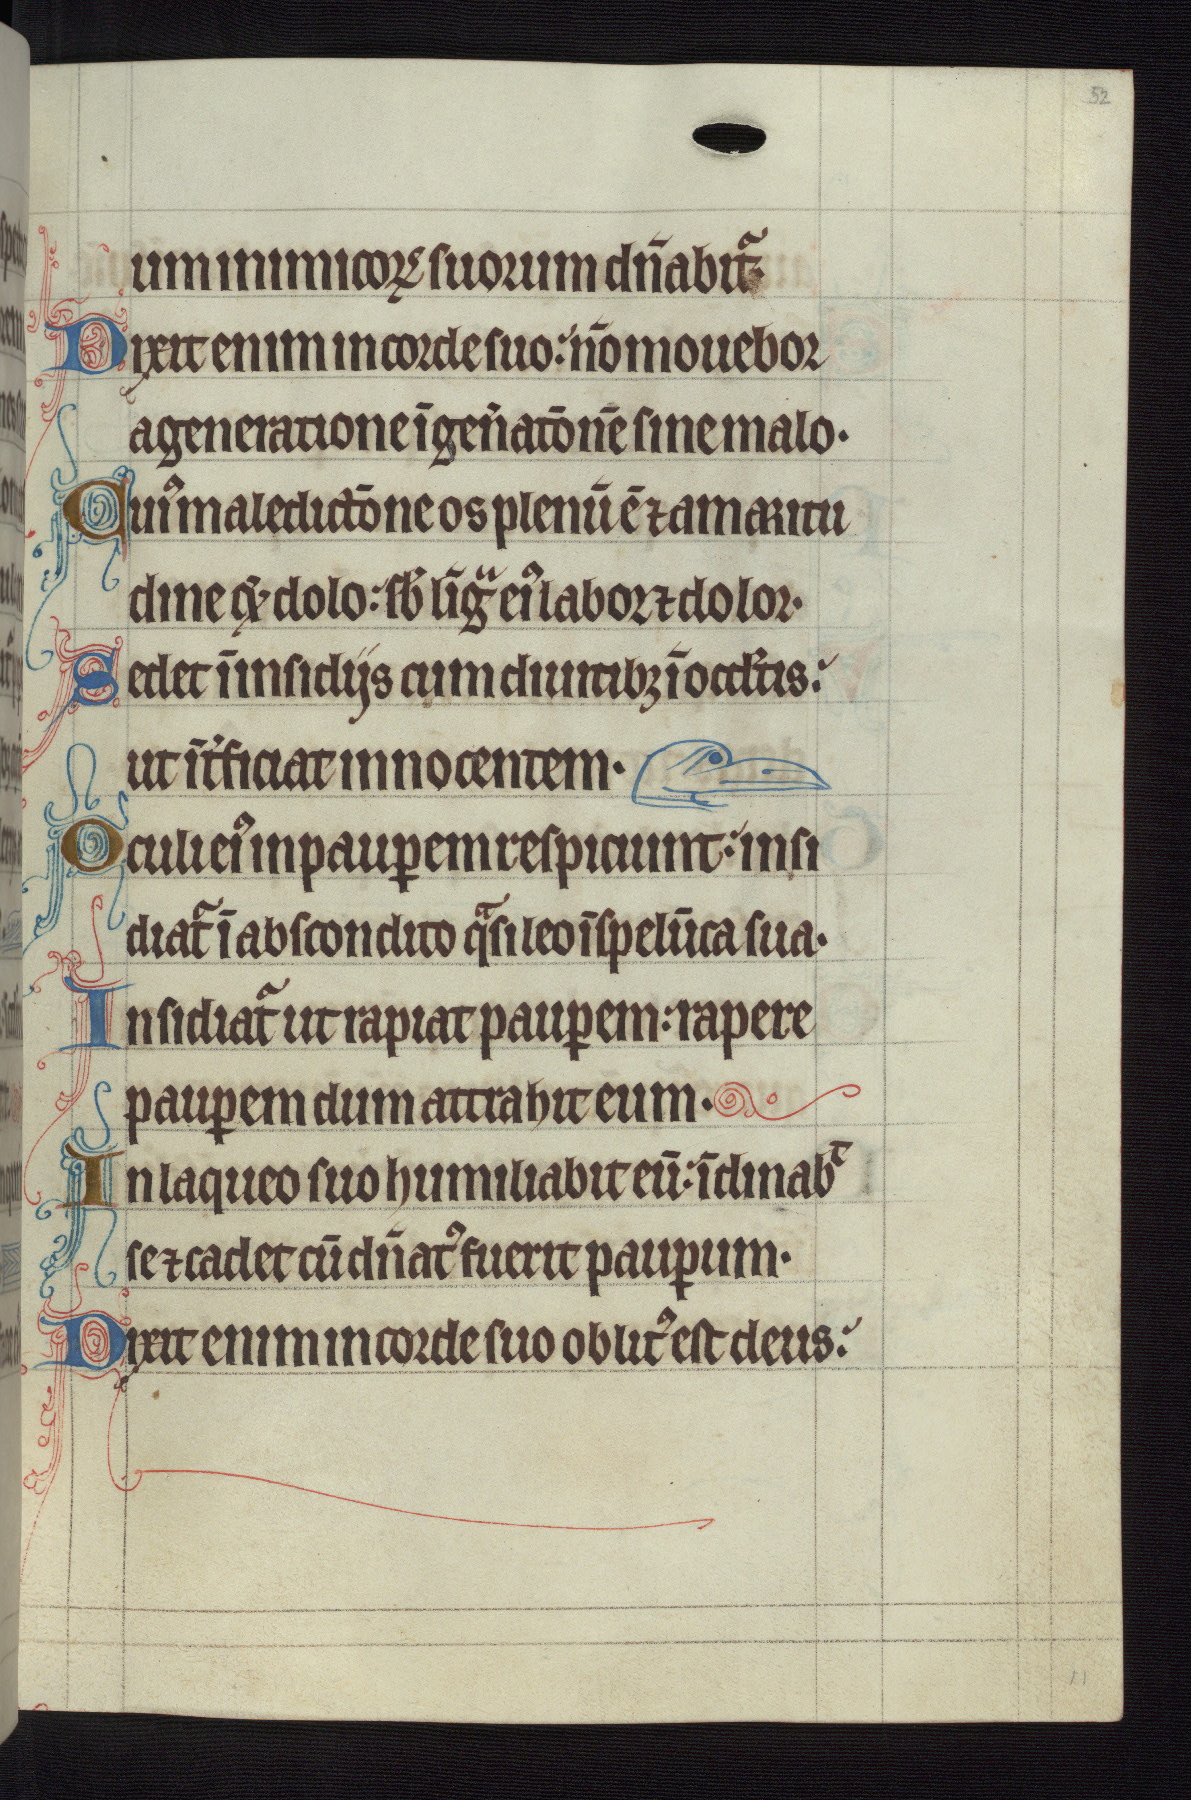 52
um inimicoꝝ suorum dn̄abit᷑.
Dixit enim in corde suo: nō mouebor
a generatione ī gen̄atōne̅ sine malo.
Cuiꝰ maledictōne os plenū ē ⁊ amaritu
dine ⁊ dolo: sb̄ līgᷓ eiꝰ labor ⁊ dolor.
Sedet ī insidijs cum diuitibꝫ ī occl̄tis:
ut īt̄ficiat innocentem.
Oculi eiꝰ in pauꝑem respiciunt: insi
diat᷑ ī abscondito qᷓsi leo ī spelūca sua.
Insidiat᷑ ut rapiat pauꝑem: rapere
pauꝑem dum attrahit eum.
In laqueo suo humiliabit eū: īclinabᵗ
se ⁊ cadet cū dn̄atꝰ fuerit pauꝑum.
Dixit enim in corde suo oblitꝰ est deus:
11